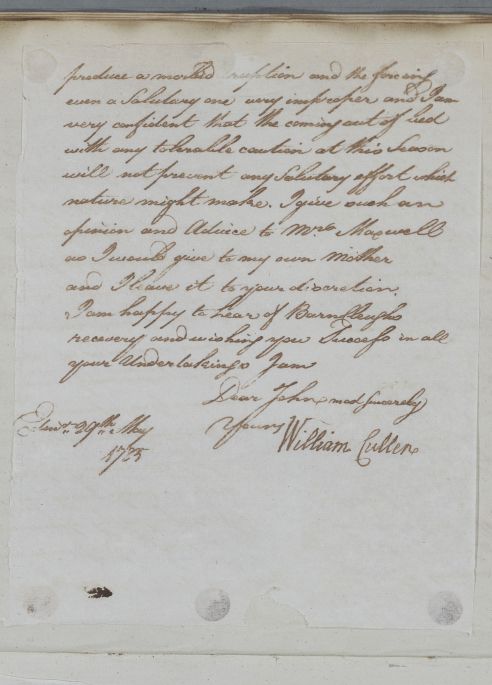 produce a morbid eruption and the forcing
even a Salutary one very improper and I am
very confident that the coming out of Bed
with any tolerable caution at this Season
will not prevent any Salutary effort which
nature might make. I give such an
opinion and Advice to Mrs. Maxwell
as I would give to my own Mother
and I leave it to your discretion.
I am happy to hear of Barncleughs
recovery and wishing you Success in all
your Undertakings I am
Dear John most Sincerely
Yours William Cullen
Edinr. 29th. May
1775